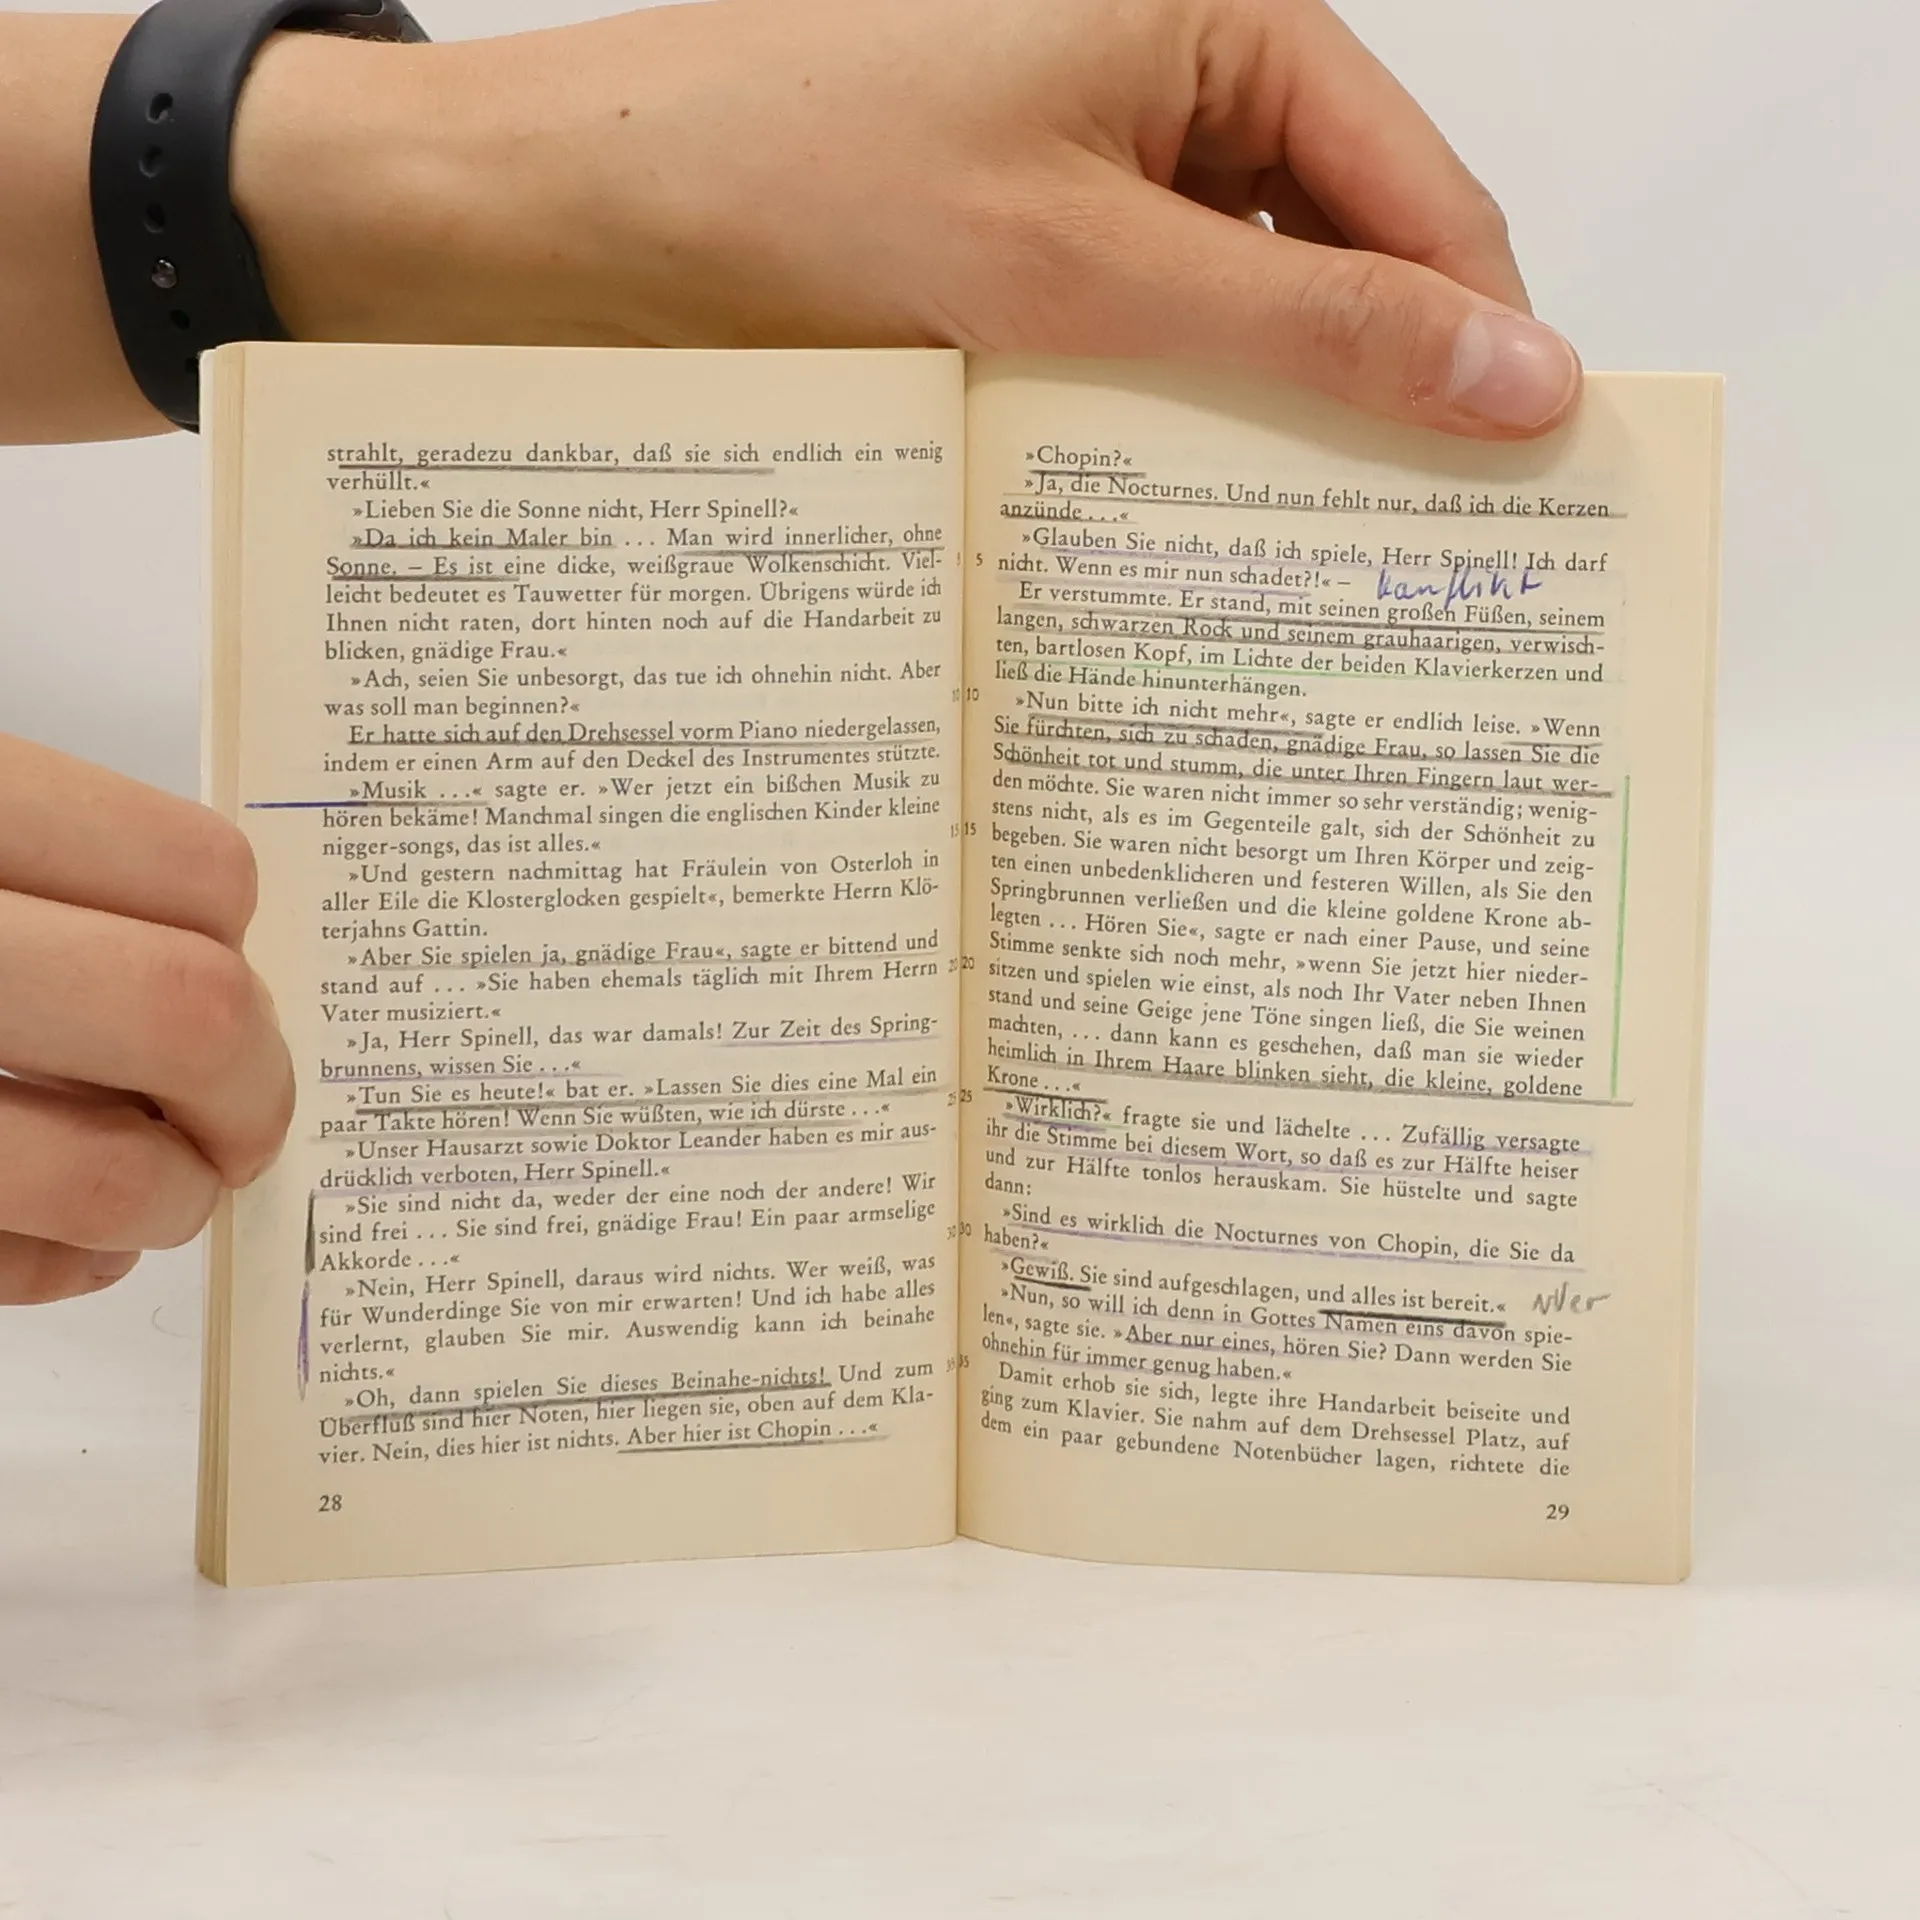 strahlt, geradezu dankbar, daß sie sich endlich ein wenig
verhüllt.«
»Lieben Sie die Sonne nicht, Herr Spinell?«
»Da ich kein Maler bin ... Man wird innerlicher, ohne
Sonne. – Es ist eine dicke, weißgraue Wolkenschicht. Viel-
leicht bedeutet es Tauwetter für morgen. Übrigens würde ich
Ihnen nicht raten, dort hinten noch auf die Handarbeit zu
blicken, gnädige Frau.«
»Ach, seien Sie unbesorgt, das tue ich ohnehin nicht. Aber
was soll man beginnen?«
Er hatte sich auf den Drehsessel vorm Piano niedergelassen,
indem er einen Arm auf den Deckel des Instrumentes stützte.
»Musik ...« sagte er. »Wer jetzt ein bißchen Musik zu
hören bekäme! Manchmal singen die englischen Kinder kleine
nigger-songs, das ist alles.«
»Und gestern nachmittag hat Fräulein von Osterloh in
aller Eile die Klosterglocken gespielt«, bemerkte Herrn Klö-
terjahns Gattin.
»Aber Sie spielen ja, gnädige Frau«, sagte er bittend und
stand auf ... »Sie haben ehemals täglich mit Ihrem Herrn
Vater musiziert.«
»Ja, Herr Spinell, das war damals! Zur Zeit des Spring-
brunnens, wissen Sie ...«
»Tun Sie es heute!« bat er. »Lassen Sie dies eine Mal ein
paar Takte hören! Wenn Sie wüßten, wie ich dürste ...«
»Unser Hausarzt sowie Doktor Leander haben es mir aus-
drücklich verboten, Herr Spinell.«
»Sie sind nicht da, weder der eine noch der andere! Wir
sind frei ... Sie sind frei, gnädige Frau! Ein paar armselige
Akkorde ...«
»Nein, Herr Spinell, daraus wird nichts. Wer weiß, was
für Wunderdinge Sie von mir erwarten! Und ich habe alles
verlernt, glauben Sie mir. Auswendig kann ich beinahe
nichts.«
»Oh, dann spielen Sie dieses Beinahe-nichts! Und zum
Überfluß sind hier Noten, hier liegen sie, oben auf dem Kla-
vier. Nein, dies hier ist nichts. Aber hier ist Chopin ...«
28
»Chopin?«
»Ja, die Nocturnes. Und nun fehlt nur, daß ich die Kerzen
anzünde ...«
»Glauben Sie nicht, daß ich spiele, Herr Spinell! Ich darf
5 nicht. Wenn es mir nun schadet?!« – Konflikt
Er verstummte. Er stand, mit seinen großen Füßen, seinem
langen, schwarzen Rock und seinem grauhaarigen, verwisch-
ten, bartlosen Kopf, im Lichte der beiden Klavierkerzen und
ließ die Hände hinunterhängen.
10 »Nun bitte ich nicht mehr«, sagte er endlich leise. »Wenn
Sie fürchten, sich zu schaden, gnädige Frau, so lassen Sie die
Schönheit tot und stumm, die unter Ihren Fingern laut wer-
den möchte. Sie waren nicht immer so sehr verständig; wenig-
stens nicht, als es im Gegenteile galt, sich der Schönheit zu
15 begeben. Sie waren nicht besorgt um Ihren Körper und zeig-
ten einen unbedenklicheren und festeren Willen, als Sie den
Springbrunnen verließen und die kleine goldene Krone ab-
legten ... Hören Sie«, sagte er nach einer Pause, und seine
Stimme senkte sich noch mehr, »wenn Sie jetzt hier nieder-
20 sitzen und spielen wie einst, als noch Ihr Vater neben Ihnen
stand und seine Geige jene Töne singen ließ, die Sie weinen
machten, ... dann kann es geschehen, daß man sie wieder
heimlich in Ihrem Haare blinken sieht, die kleine, goldene
Krone ...«
25 »Wirklich?« fragte sie und lächelte ... Zufällig versagte
ihr die Stimme bei diesem Wort, so daß es zur Hälfte heiser
und zur Hälfte tonlos herauskam. Sie hüstelte und sagte
dann:
»Sind es wirklich die Nocturnes von Chopin, die Sie da
30 haben?«
»Gewiß. Sie sind aufgeschlagen, und alles ist bereit.«
»Nun, so will ich denn in Gottes Namen eins davon spie-
len«, sagte sie. »Aber nur eines, hören Sie? Dann werden Sie
ohnehin für immer genug haben.«
35 Damit erhob sie sich, legte ihre Handarbeit beiseite und
ging zum Klavier. Sie nahm auf dem Drehsessel Platz, auf
dem ein paar gebundene Notenbücher lagen, richtete die
29